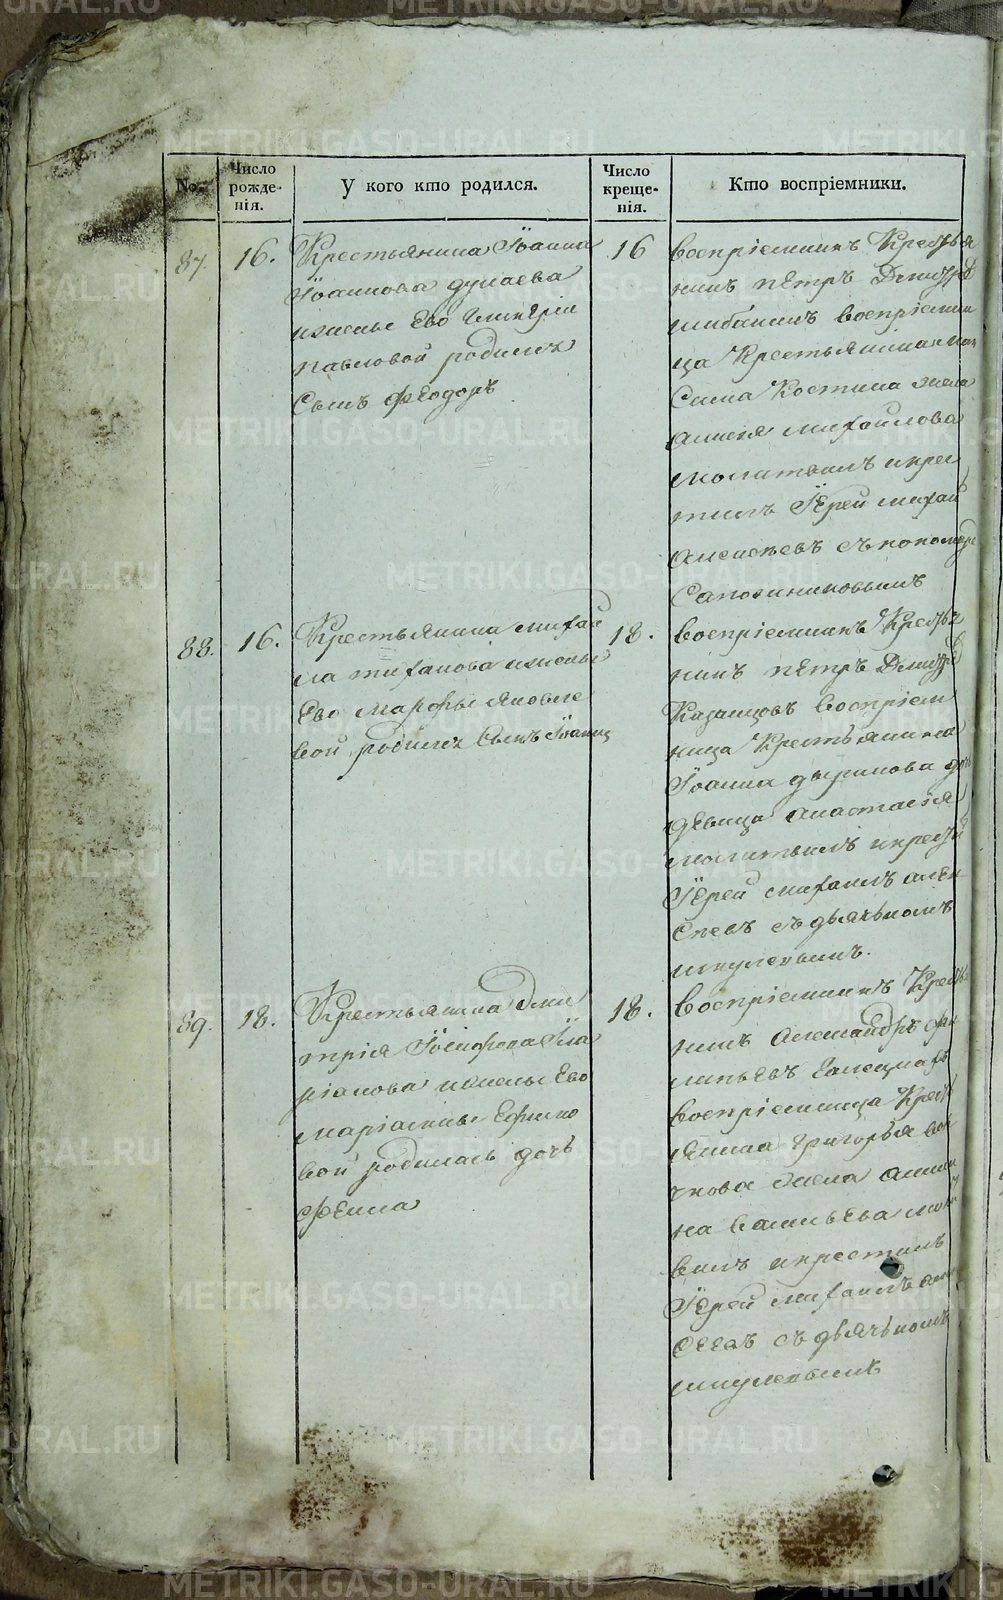 №.
Число рожде-нія.
У кого кто родился.
Число креще-нія.
Кто воспріемники.
87.
16.
Крестьянина Іоанна
Іоаннова дунаева
ижены Ево Гликеріи
павловой родился
Сынъ Феодоръ
16
воспріемникъ Крестья
нинъ пЕтръ Дмитр
шибакинъ воспріемни
ца Крестьянина
Сима Костина жена
михайлова
молитвилъ икрес
тилъ ІЕрей михаи
алексѣевъ съ пономар
Сапожниковымъ
88.
16.
Крестьянина михаи
ла тиханова ижены
Ево марфы яковле
вой родился Сынъ Іоаннъ
18.
воспріемникъ Крестья
нинъ пЕтръ Дмитр
Казанцовъ воспріем
ница Крестьянина
Іоанна дырикова до
дѣвица анастасія
молитвилъ икрести
ІЕрей михаилъ алек
сѣевъ съ дьячькомъ
89.
18.
Крестьянина Дми
трія
ижены Ево
маріанны Ефимо
вой родилась дочь
фЕкла
18.
воспріемникъ Кресть
нинъ Александръ фи
липьЕвъ
воспріемница Крест
янина Григорья во
чкова жена
на васильЕва моли
вилъ икрестилъ
ІЕрей михаилъ але
съ дьячькомъ
METRIKI.GASO-URAL.RU